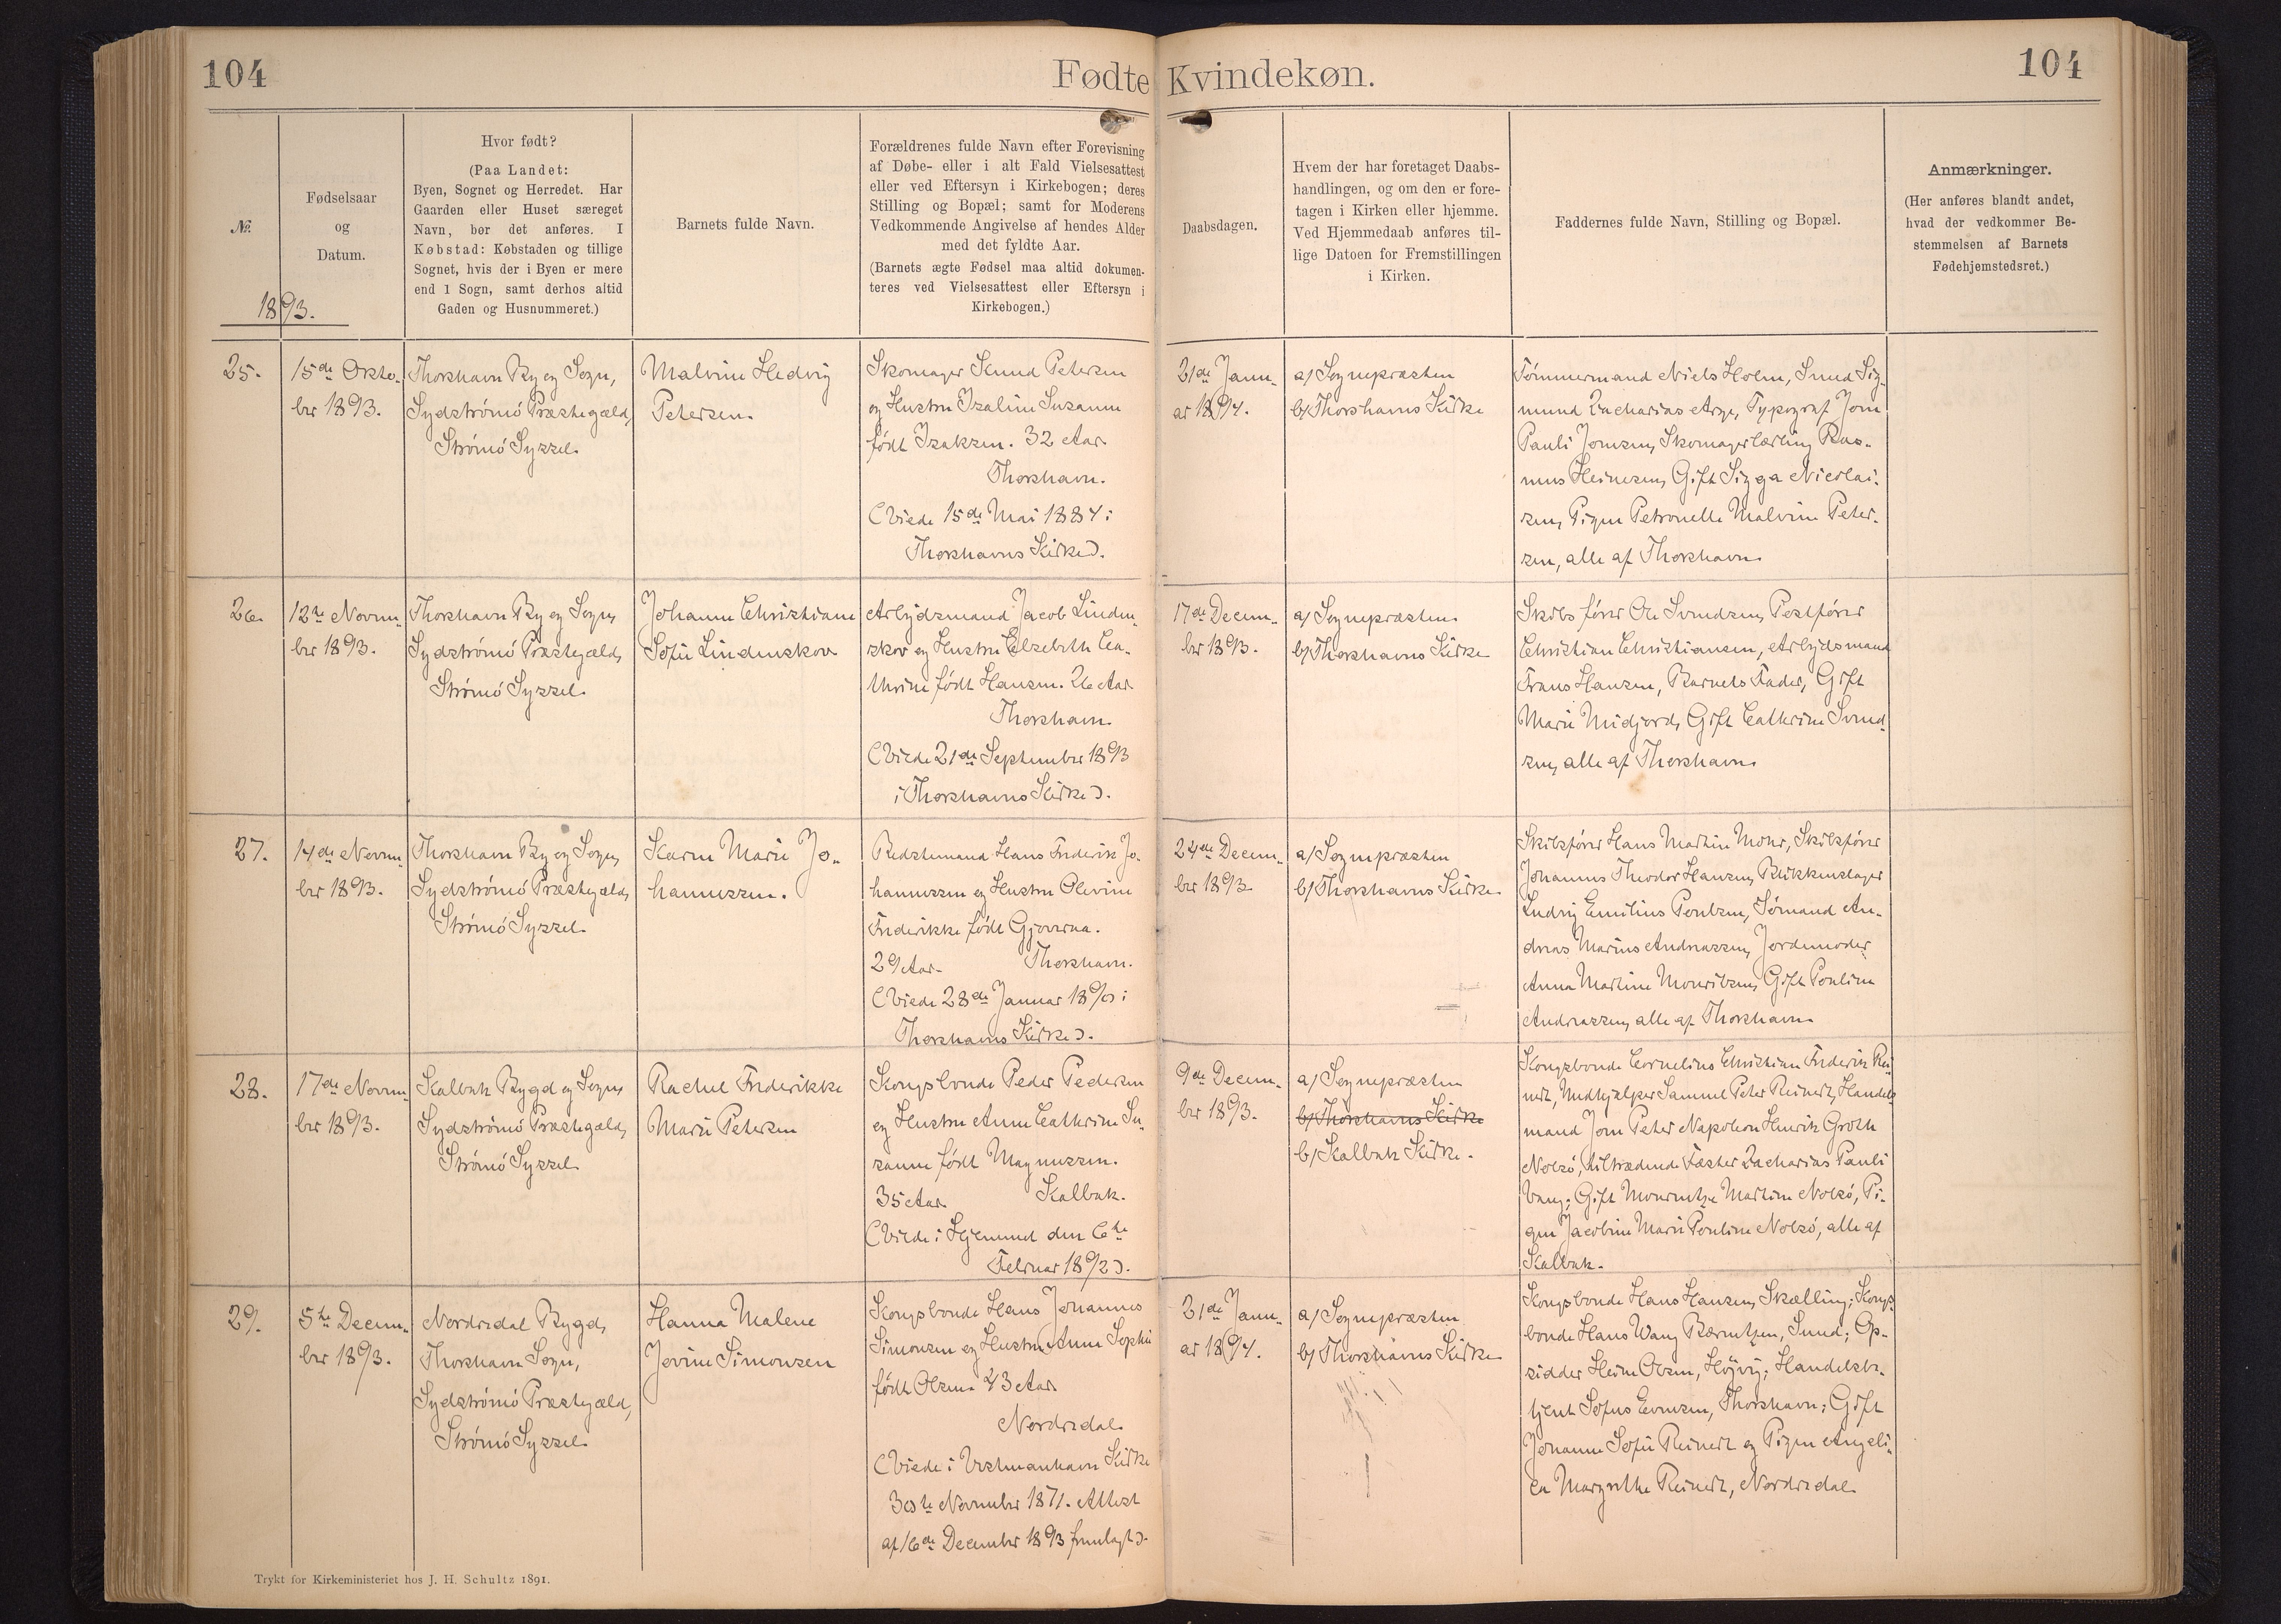 104
Fødte Kvindekøn.
104
№
Fødselsaar
og
Datum.
1893.
Hvor født?
(Paa Landet:
Byen, Sognet og Herredet. Har
Gaarden eller Huset særeget
Navn, bør det anføres. I
Købstad: Købstaden og tillige
Sognet, hvis der i Byen er mere
end 1 Sogn, samt derhos altid
Gaden og Husnummeret.)
Barnets fulde Navn.
Forældrenes fulde Navn efter Forevisning
af Døbe- eller i alt Fald Vielsesattest
eller ved Eftersyn i Kirkebogen; deres
Stilling og Bopæl; samt for Moderens
Vedkommende Angivelse af hendes Alder
med det fyldte Aar.
(Barnets ægte Fødsel maa altid dokumen-
teres ved Vielsesattest eller Eftersyn i
Kirkebogen.)
Daabsdagen.
Hvem der har foretaget Daabs-
handlingen, og om den er fore-
tagen i Kirken eller hjemme.
Ved Hjemmedaab anføres til-
lige Datoen for Fremstillingen
i Kirken.
Faddernes fulde Navn, Stilling og Bopæl.
Anmærkninger.
(Her anføres blandt andet,
hvad der vedkommer Be-
stemmelsen af Barnets
Fødehjemstedsret.)
25.
15de Okto-
ber 1893.
Thorshavn By og Sogn,
Sydstrømø Præstegæld,
Strømø Syssel.
Malvine Hedvig
Petersen.
Skomager Knud Petersen
og Hustru Isaline Susanne
født Isaksen. 32 Aar.
Thorshavn.
(Viede 15de Mai 1884 i
Thorshavns Kirke).
21de Janu-
ar 1894.
a/ Sognepræsten
b/ Thorshavns Kirke
Tømmermand Niels Holm, Smed Sig-
mund Zacharias Arge, Typograf Jom
Pauli Jomsen, Skomagerlærling Ras-
mus Heinesen, Gift Sigga Nicolai-
sen, Pigen Petronelle Malvine Peter-
sen, alle af Thorshavn.
26.
12te Novem-
ber 1893.
Thorshavn By og Sogn,
Sydstrømø Præstegæld,
Strømø Syssel.
Johanne Christiane
Sofie Lindenskov
Arbejdsmand Jacob Linden-
skov og Hustru Elsebeth Ca-
thrine født Hansen. 26 Aar.
Thorshavn.
(Viede 21de September 1893
i Thorshavns Kirke).
17de Decem-
ber 1893.
a/ Sognepræsten.
b/ Thorshavns Kirke
Skibsfører Ole Svendsen, Postfører
Christian Christiansen, Arbejdsmand
Frans Hansen, Barnets Fader, Gift
Marie Midjord, Gift Cathrine Svend-
sen, alle af Thorshavn.
27.
14de Novem-
ber 1893.
Thorshavn By og Sogn,
Sydstrømø Præstegæld,
Strømø Syssel.
Karen Marie Jo-
hannessen.
Bedstemand Hans Frederik Jo-
hannessen og Hustru Olevine
Frederikke født Gjoveraa.
29 Aar. Thorshavn.
(Viede 28de Januar 18 i
Thorshavns Kirke).
24de Decem-
ber 1893.
a/ Sognepræsten
b/ Thorshavns Kirke.
Skibsfører Hans Martin Mohr, Skibsfører
Johannes Theodor Hansen, Blikkenslager
Ludvig Emilius Poulsen, Sømand An-
dreas Marius Andreassen, Jordemoder
Anna Martine Mouritsen, Gift Pouline
Andreassen, alle af Thorshavn.
28.
17de Novem-
ber 1893.
Kalbak Bygd og Sogn,
Sydstrømø Præstegæld,
Strømø Syssel.
Rachel Frederikke
Marie Petersen
Kongsbonde Peder Pedersen
og Hustru Anne Cathrine Su-
sanne født Magnussen.
35 Aar. Kalbak.
(Viede i Hjemmet den 6te
Februar 1892).
9de Decem-
ber 1893.
a/ Sognepræsten
b/ Thorshavns Kirke
b/ Kalbak Kirke.
Kongsbonde Cornelius Christian Frederik Rei-
nert, Medhjælper Sammel Peter Reinert, Handels
mand Jom Peter Napoleon Henrik Groth
Nolsø, tiltrædende Fæster Zacharias Pauli
Vang; Gift Mourentze Martine Nolsø, Pi-
gen Jacobine Marie Pouline Nolsø, alle af
Kalbak.
29.
5te Decem-
ber 1893.
Nordredal Bygd,
Thorshavn Sogn,
Sydstrømø Præstegæld,
Strømø Syssel.
Hanna Malene
Jovine Simonsen
Kongsbonde Hans Johannes
Simonsen og Hustru Anne Sophie
født Olsen. 43 Aar.
Nordredal.
(Viede i Vestmanhavn Kirke
30te November 1871. Attest
af 16de December 1893 fremlagt).
21de Janu-
ar 1894.
a/ Sognepræsten
b/ Thorshavns Kirke
Kongsbonde Hans Hansen, Skælling; Kongs-
bonde Hans Wang Bærentsen, Sund; Op-
sidder Heine Olsen, Højvig; Handelsbe-
tjent Sofus Evensen, Thorshavn; Gift
Johanne Sofie Reinert og Pigen Angeli-
ca Margrethe Reinert, Nordredal.
Trykt for Kirkeministeriet hos J. H. Schultz 1891.